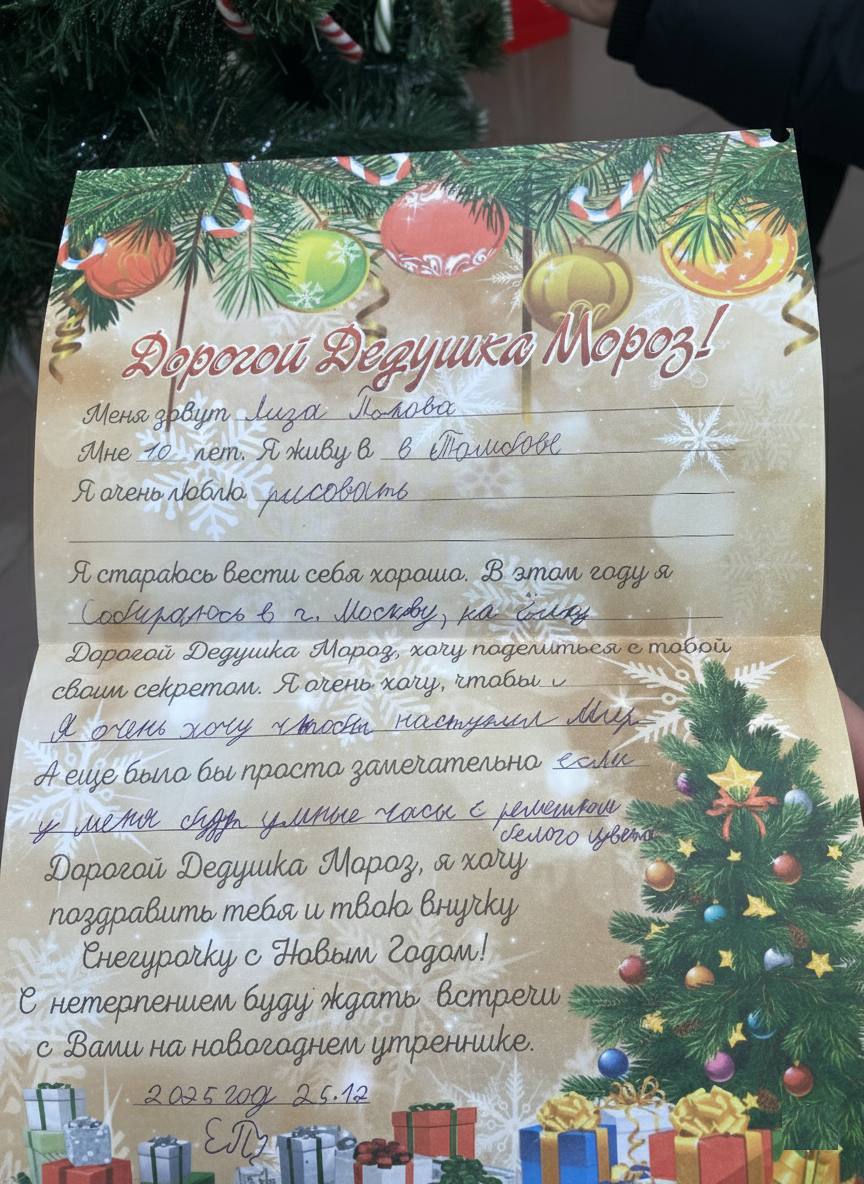 Дорогой Дедушка Мороз!
Меня зовут Лиза Попова
Мне 10 лет. Я живу в в Тамбове
Я очень люблю рисовать
Я стараюсь вести себя хорошо. В этом году я
Собираюсь в г. Москву, на ёлку
Дорогой Дедушка Мороз, хочу поделиться с тобой
своим секретом. Я очень хочу, чтобы
Я очень хочу чтобы наступил Мир
А еще было бы просто замечательно если
у меня будут умные часы с ремешком
белого цвета
Дорогой Дедушка Мороз, я хочу
поздравить тебя и твою внучку
Снегурочку с Новым Годом!
С нетерпением буду ждать встречи
с Вами на новогоднем утреннике.
2025 год 25.12